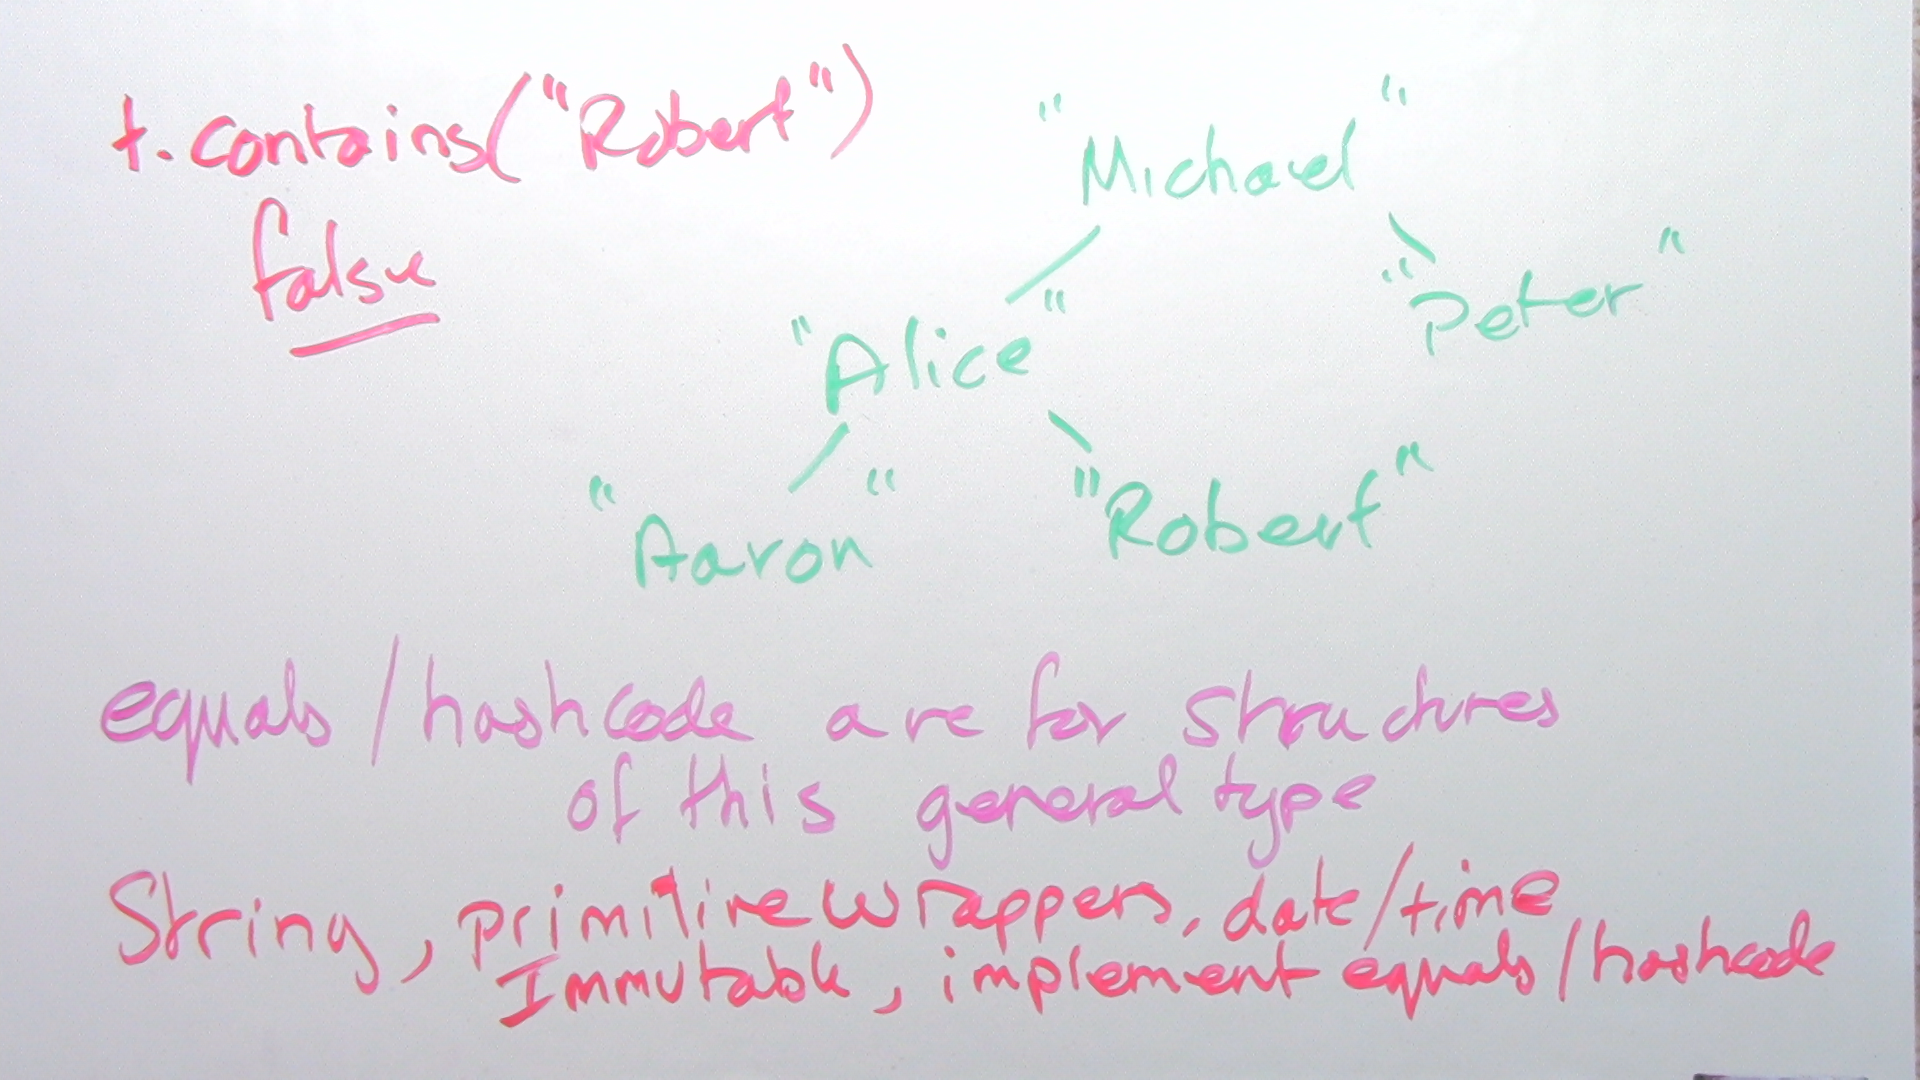 t.contains("Robert")
false
"Michael"
"Peter"
"Alice"
"Aaron"
"Robert"
equals/hashcode are for structures
of this general type
String, primitive wrappers, date/time
Immutable, implement equals/hashcode